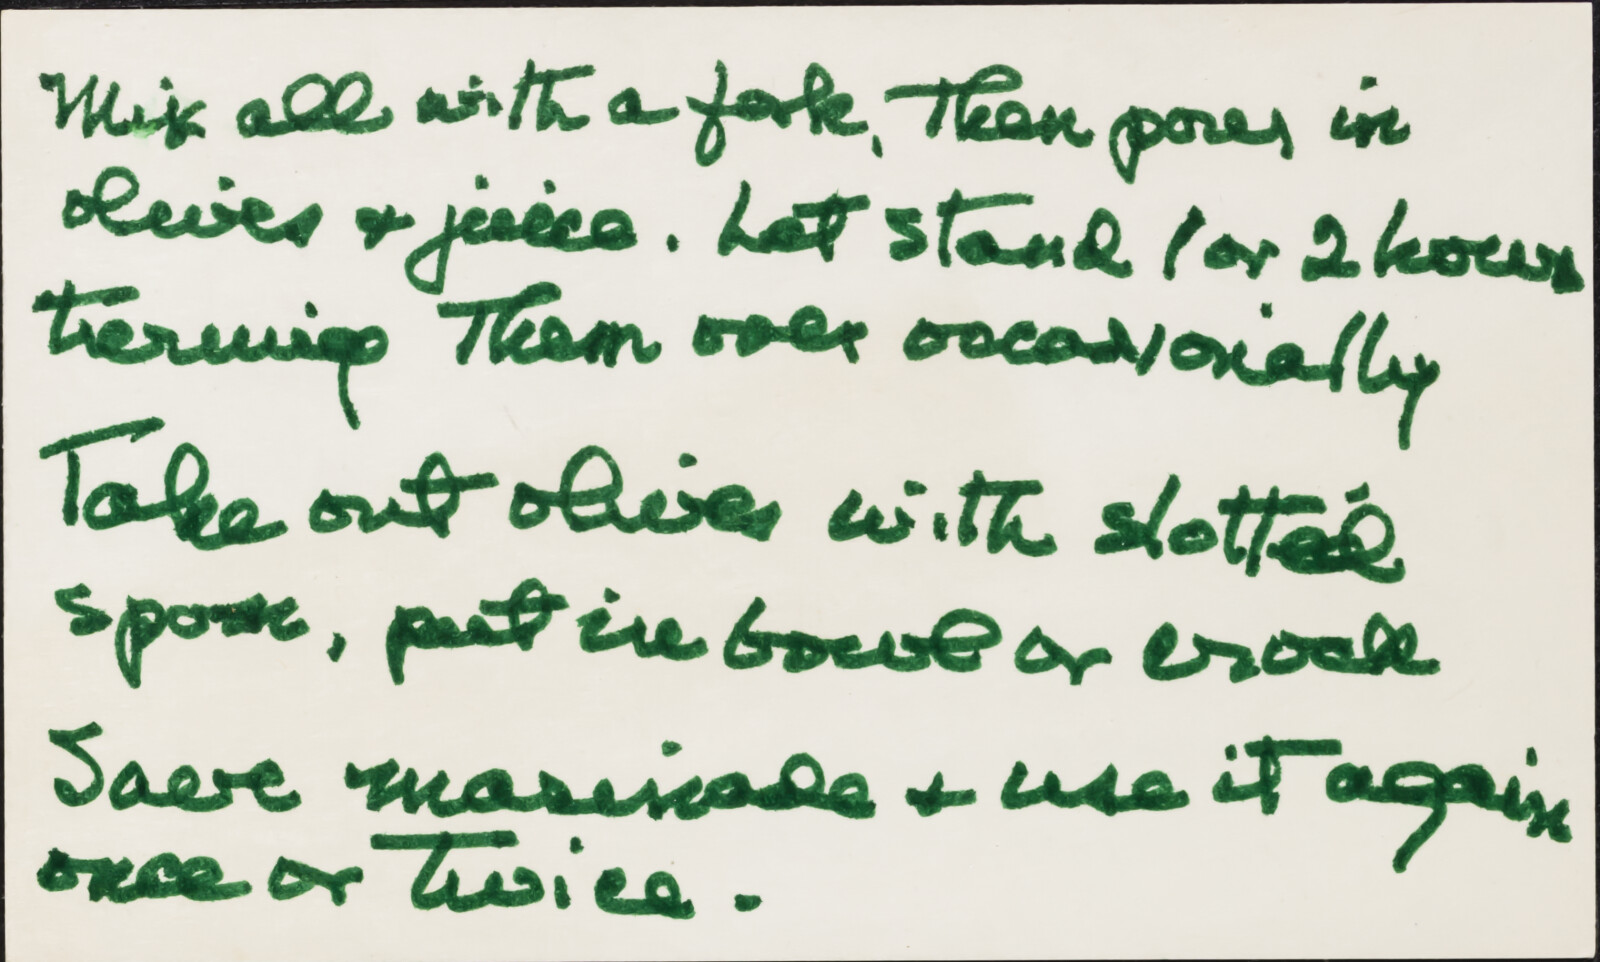 Mix all with a fork, Then pour in
olives + juice. Let stand 1 or 2 hours
turning Them over occasionally
Take out olives with slotted
spoon, put in bowl or crock
Save marinade + use it again
once or Twice.